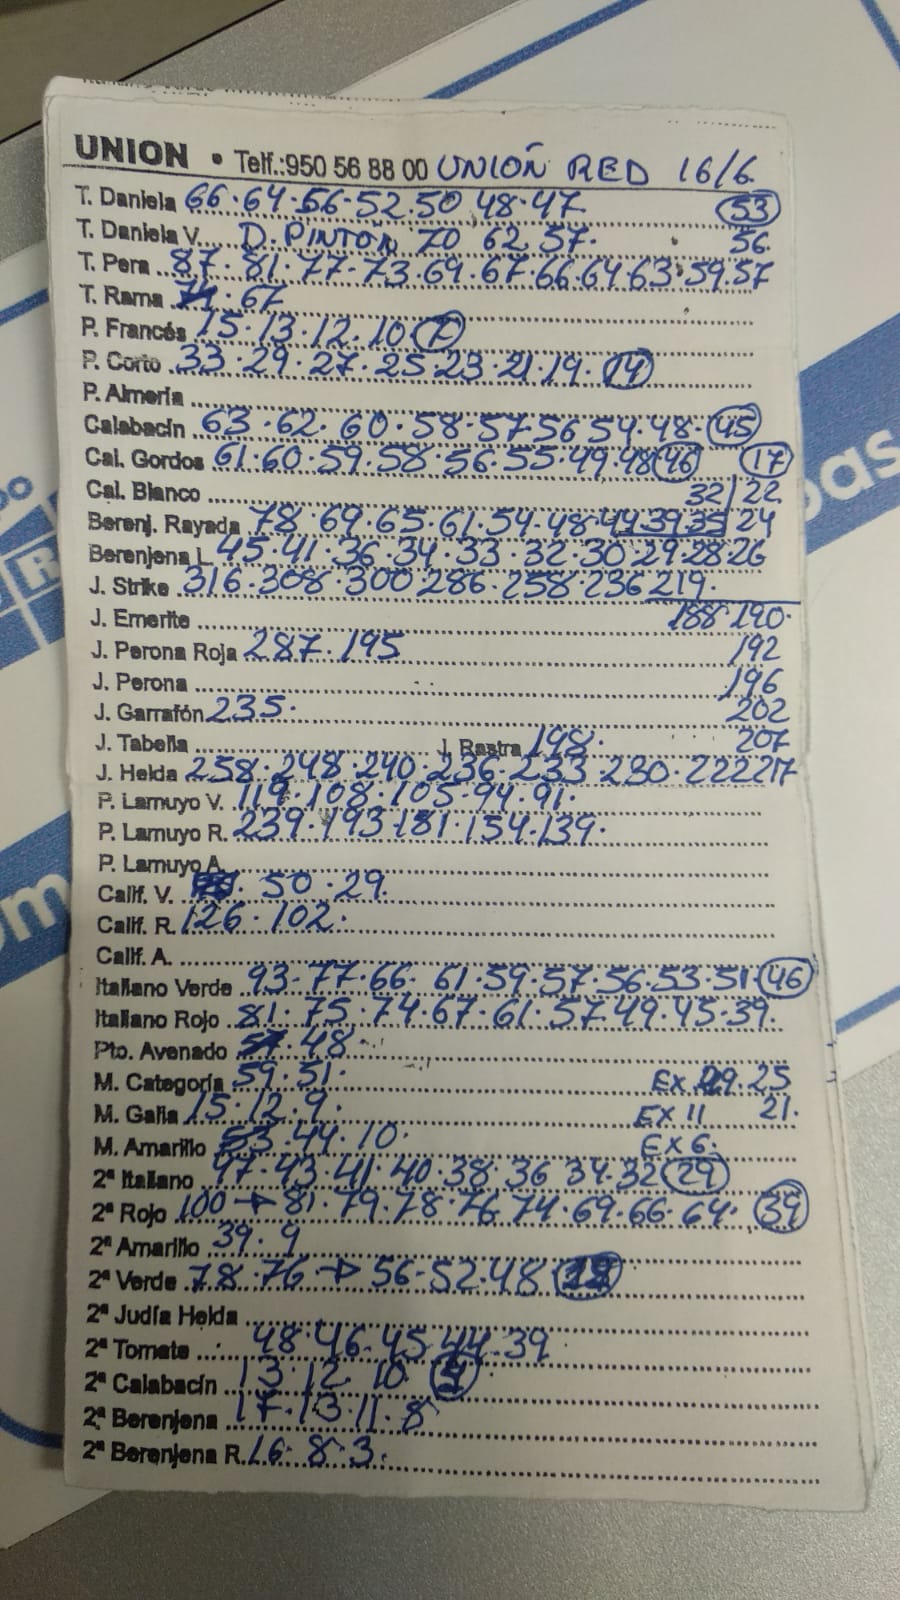 UNION • Telf.:950 56 88 00 UNIÓN RED 16/6
T. Daniela 66·64·56·52·50 48·47 53
T. Daniela V. D. PINTÓN 70 62 57· 56
T. Pera 87·81·77·73·69·67·66·64·63·59·57
T. Rama ·67
P. Francés 15·13·12·10 7
P. Corto 33·29·27·25·23·21·19· 14
P. Almería
Calabacín 63·62·60·58·57·56 54·48· 45
Cal. Gordos 61·60·59·58·56·55·49·48 46 17
Cal. Blanco 32/22
Berenj. Rayada 78·69·65·61·54·48·44 39 35 24
Berenjena L 45·41·36·34·33·32·30·29·28·26
J. Strike 316·308·300 286·258·236 219·
J. Emerite 188 190·
J. Perona Roja 287·195 192
J. Perona 196
J. Garrafón 235· 202
J. Tabella J. Rastra 198· 207
J. Helda 258·248·240·236·233·230·222 217
P. Lamuyo V. 119·108·105·94·91·
P. Lamuyo R. 239·193·181·154·139·
P. Lamuyo A.
Calif. V. · 50·29
Calif. R. 126·102·
Calif. A.
Italiano Verde 93·77·66·61·59·57·56·53·51· 46
Italiano Rojo 81·75·74·67·61·57·49·45·39·
Pto. Avenado 48·
M. Categoría 59·51· EX 29·25
M. Galia 15·12·9· EX 11 21·
M. Amarillo 53·44·10· EX 6·
2ª Italiano 47·43·41·40·38·36 34·32 29
2ª Rojo 100 → 81·79·78·76 74·69·66·64· 39
2ª Amarillo 39·9
2ª Verde 78·76 → 56·52·48
2ª Judía Helda
2ª Tomate 48·46·45·44·39
2ª Calabacín 13·12·10
2ª Berenjena 17·13·11·8
2ª Berenjena R. 16·8·3·